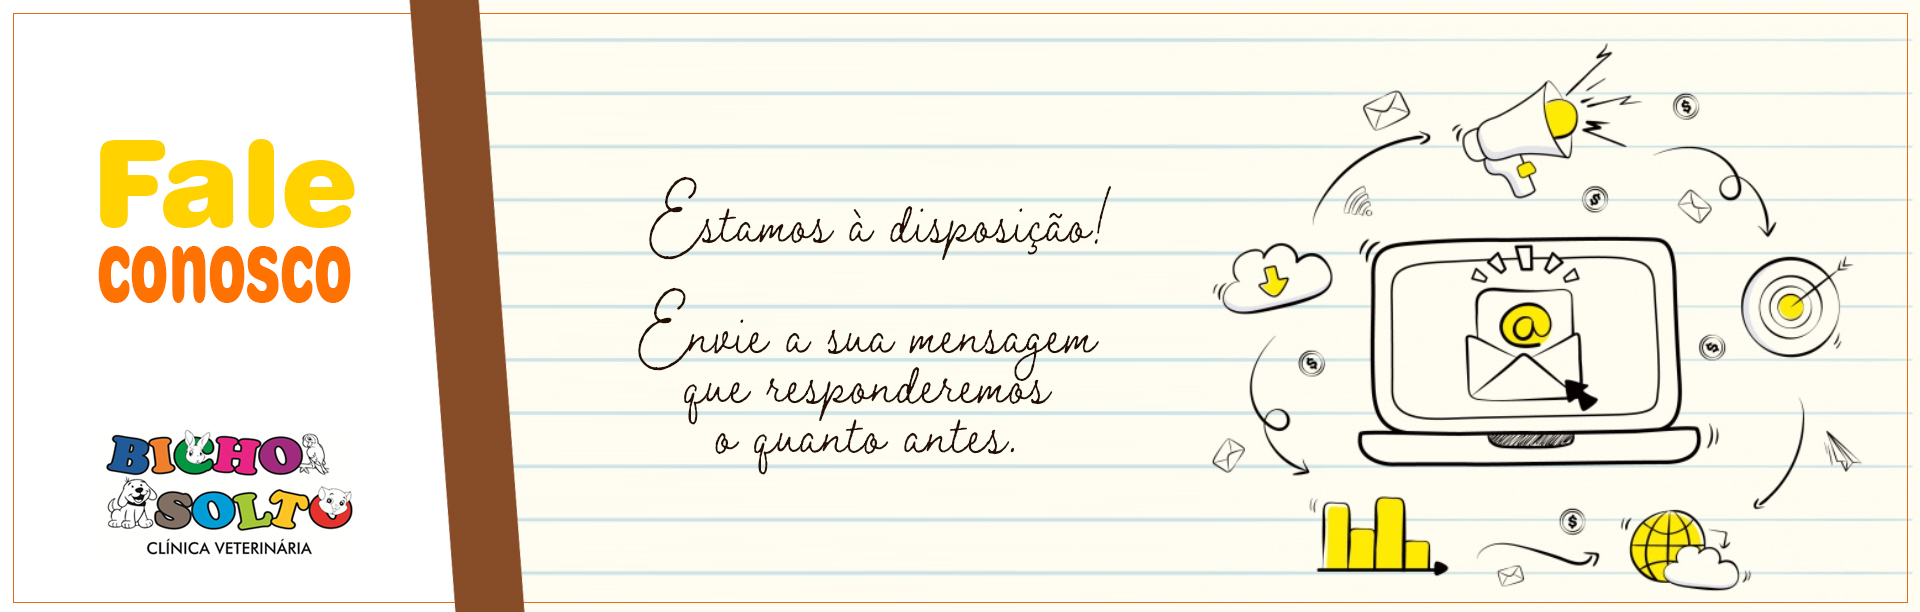 Fale
conosco
BICHO
SOLTO
CLÍNICA VETERINÁRIA
Estamos à disposição!
Envie a sua mensagem
que responderemos
o quanto antes.
@
$
$
$
$
$